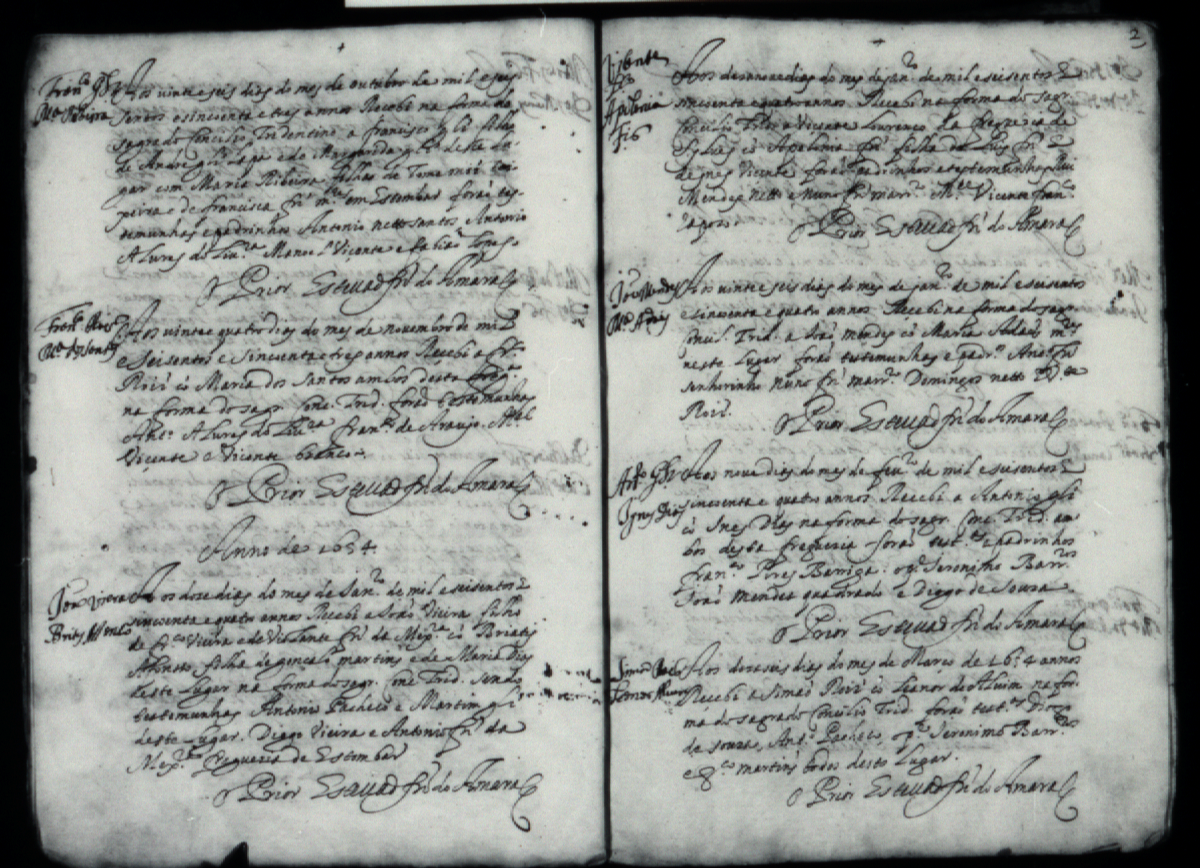 Aos vinte e seis dias do mes de outubro de mil e seis
sentos e sincoenta e tres annos Recebi na forma do
sagrado Concilio Tridentino a francisco glz filho
de Andre glz e de Margarida glz deste lu
gar com Maria Ribeira filha de Tome
e de francisca frz em Estombar forão tes
temunhas e padrinhos Antonio netto santos Antonio
Alures Manoel Vicente e Lopes
O Prior Esteuão frz do Amaral
Maria dos Santos
Aos vinte e quatro dias do mes de nouembro de mil
e Seisentos e Sincoenta e tres annos Recebi a
Roiz cõ Maria dos Santos ambos desta
na forma do sagr. Conc. Trid. forão testemunhas
Ant.º Alures da fran.co de Araujo. M.el
Vicente e Vicente
O Prior Esteuão frz do Amaral
Anno de 1654
João Vieira
Brites Afonso
Aos doze dias do mes de Jan.ro de mil e seisentos e
sincoenta e quatro annos Recebi a João Vieira filho
de Vieira e de Violante frz da Mex.ra cõ Briatis
Afonso, filha de gonçalo martins e de Maria Dias
deste Lugar na forma do sagr. Conc. Trid. sendo
testemunhas Antonio Pacheco e Martim glz
deste Lugar. Diogo Vieira e Antonio frz da
Mex.ra freguezia de Estombar
O Prior Esteuão frz do Amaral
2
Vicente
Apolonia
frz
Aos desanoue dias do mes de Jan.ro de mil e seisentos e
sincoenta e quatro annos Recebi na forma do sagr.
Concilio Trid. a Vicente Lourenço da freguezia de
Sylues cõ Apolonia frz filha de Luis frz e
de Ines Vicente forão padrinhos e testemunhas Rui
Mendes netto e Nuno frz M.el Vicente fran.co
O Prior Esteuão frz do Amaral
João Mendes
Aos vinte e seis dias do mes de Jan.ro de mil e seisentos
e sincoenta e quatro annos Recebi na forma do sagr.
Concil. Trid. a João mendes cõ Maria
neste Lugar forão testemunhas e padr.os Ant.º frz
senhorinho nuno frz Domingos netto
Roiz.
O Prior Esteuão frz do Amaral
Ant.º Glz
Ignes Dias
Aos noue dias do mes de feu.ro de mil e seisentos e
sincoenta e quatro annos Recebi a Antonio glz
cõ Ines Dias na forma do sagr. Conc. Trid. am
bos desta freguezia forão test.as e padrinhos
fran.co Pires Barriga. o p.e Jeronimo Barr.os
João Mendes quadrado e Diogo de Souza
O Prior Esteuão frz do Amaral
Simão Roiz
Lianor
Aos dezaseis dias do mes de Março de 1654 annos
Recebi a Simão Roiz cõ Leanor de Aluim na for
ma do sagrado Concilio Trid. forão test.as Diogo
de souza, Ant.º Pacheco, o p.e Jeronimo Barr.os
e martins todos deste Lugar.
O Prior Esteuão frz do Amaral